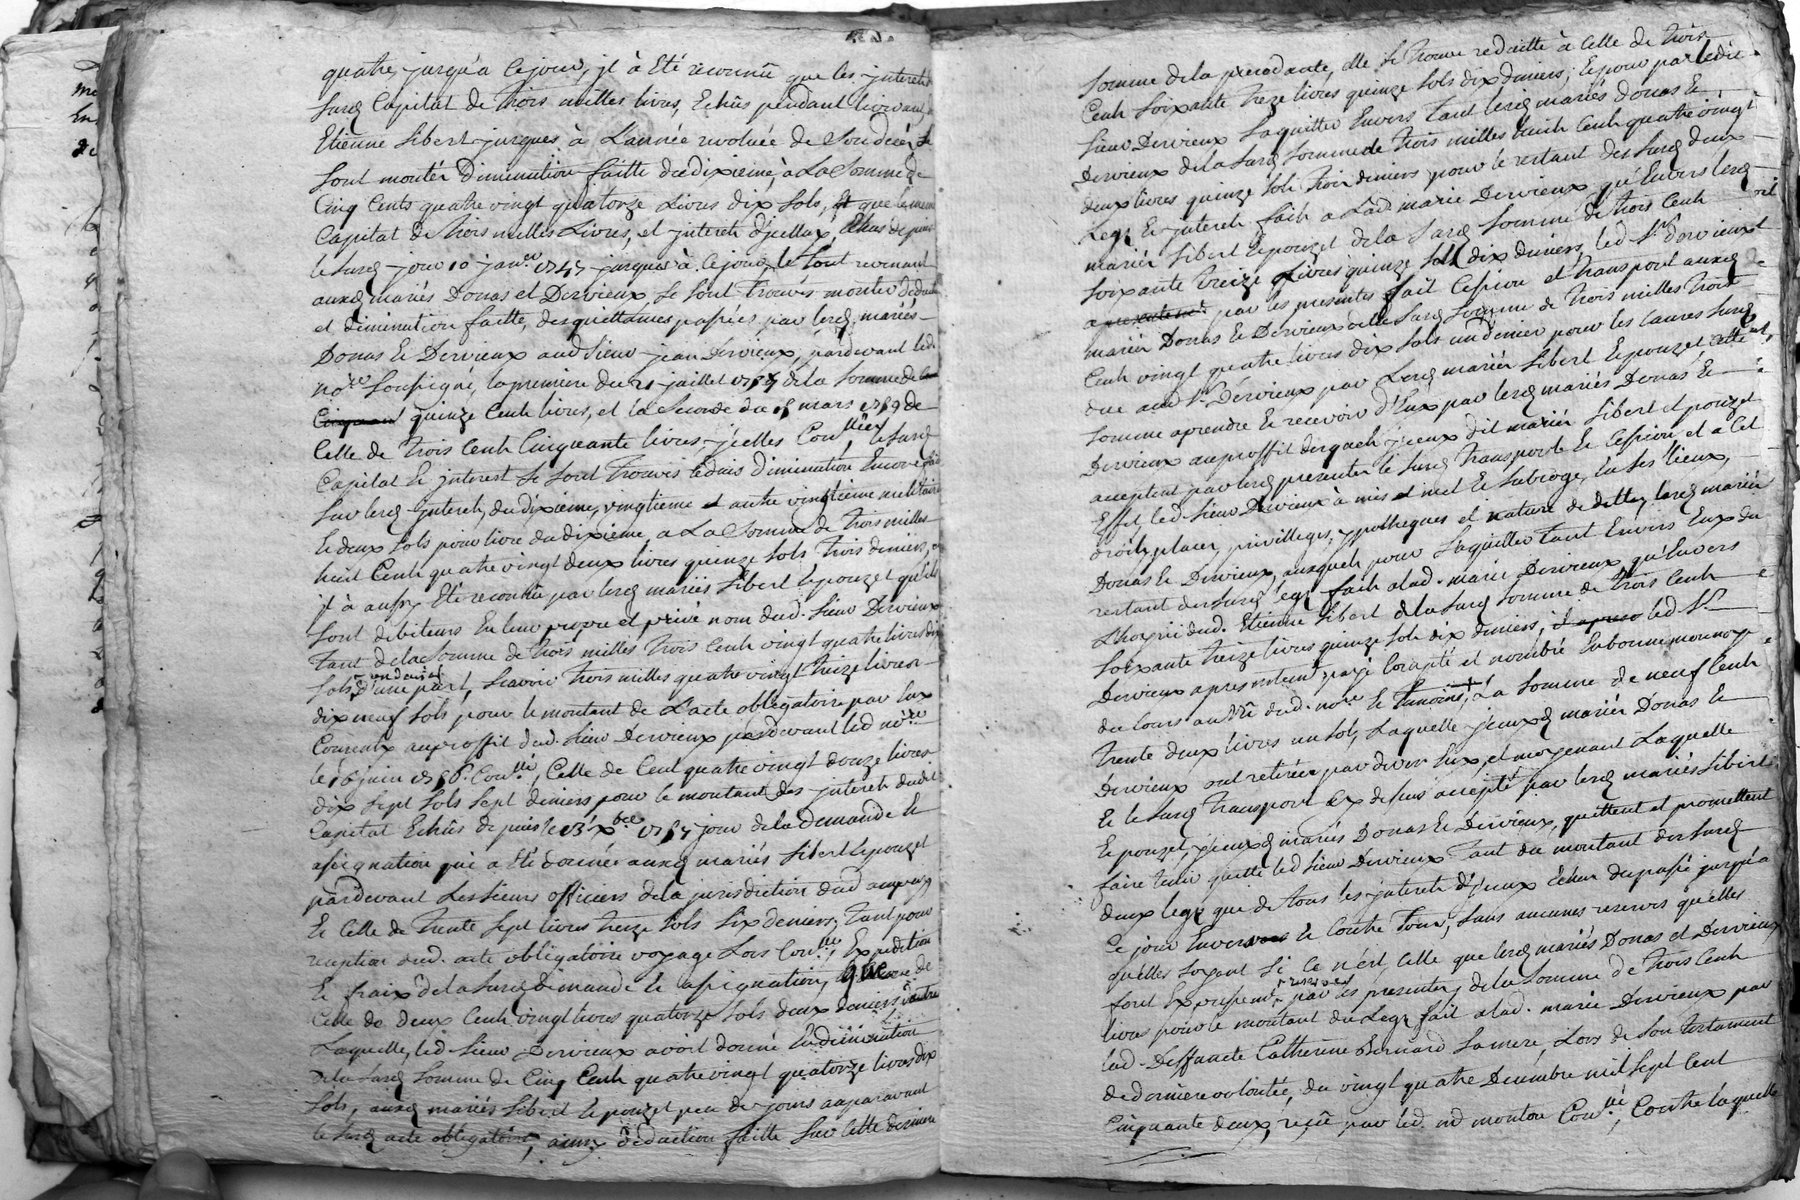 quatre, jusqu'a ce jour, jl à Eté reconnû que les jnterets
Susd Capital de trois milles livres, Echûs pendant
Etienne Sibert jusques à L'année revoluée de Son deces, Se
Sont montés Diminution faitte du dixieme, a La Somme de
Cinq Cents quatre vingt quatorze Livres dix Sols, Et que le meme
Capital de trois milles Livres, et jnterets d'jcelluy, Echus depuis
le Susd jour 10 janer jusques à ce jour, le tout revenant
auxd mariés Donas et Dervieux, Se Sont trouvés monter déduction
et diminution faitte, des quittances passées par lesd mariés
Donas Et Dervieux aud Sieur jean Dervieux, pardevant led
nore Soussigné, la premiere du 21 juillet de la Somme de
quinze Cents livres, et la Seconde du mars 1759 de
Celle de trois Cent Cinquante livres jcelles Conllées, le Susd
Capital Et jnterest Se Sont trouvés reduis diminution Encore faitte
Sur lesd jnterets, du dixieme, vingtieme et autre vingtieme militaire
Et deux Sols pour livre du dixieme, a La Somme de trois milles
huit Cents quatre vingt deux livres quinze Sols trois deniers,
jl à aussy Eté reconnu par lesd mariés Sibert Et pouzet qu'ils
Sont debiteurs En leur propre et privé nom dud. Sieur Dervieux
tant de la Somme de trois milles trois Cents vingt quatre livres dix
Sols un denier d'une part, Scavoir trois milles quatre vingt treize livres
dix neuf Sols pour le montant de L'acte obligatoire par Eux
Consentx au proffit dud. Sieur Dervieux pardevant led nore
le 16 juin Conllé, Celle de Cent quatre vingt douze livres
dix Sept Sols Sept deniers pour le montant des jnterets dudit
Capital Echûs depuis le 13 xbre 1757 jour de la demande Et
assignation qui a Eté donnée auxd mariés Sibert Et pouzet
pardevant Les Sieurs officiers de la jurisdiction dud
Et Celle de trente Sept livres treize Sols Six deniers, tant pour
reception dud. acte obligatoire voyage Lors Conlle, Expedition
Et fraix de la Susd demande Et assignation, que de
Celle de deux Cents vingt livres quatorze Sols deux deniers d'autre
Laquelle, led. Sieur Dervieux avoit donné En diminution
de la Susd Somme de Cinq Cents quatre vingt quatorze livres dix
Sols, auxd mariés Sibert Et pouzet peu de jours auparavant
le Susd acte obligatoire, ainsy déduction faitte Sur Cette derniere
Somme de la precedante, elle Se trouve reduitte à Celle de trois
Cents Soixante treize livres quinze Sols dix deniers; Et pour par ledit
Sieur Dervieux S'aquitter Envers tant lesd mariés Donas Et
Dervieux de la Susd Somme de trois milles huit Cents quatre vingt
deux livres quinze Sols trois deniers pour le restant des Susd deux
Legs Et jnterets faits a Lad marie Dervieux, qu'Envers lesd
mariés Sibert Et pouzet de la Susd Somme de trois Cents
Soixante treize Livres quinze Sols dix deniers, led Sr Dervieux
par les presentes fait Cession et transport auxd
mariés Donas Et Dervieux de la Susd Somme de trois milles trois
Cents vingt quatre livres dix Sols un denier pour les Causes Susd
due aud Sr Dervieux par Lesd mariés Sibert Et pouzet
Somme aprendre Et recevoir d'Eux par lesd mariés Donas Et
Dervieux au proffit desquels jceux dit mariés Sibert et pouzet
acceptent par lesd presentes le Susd transport Et Cession, et a Cet
Effet, led. Sieur Dervieux à mis et met Et Subroge, En Ses lieux,
droits, places, privilleges, ypotheques et nature de dette, lesd mariés
Donas Et Dervieux, auxquels pour S'aquitter tant Envers Eux du
restant des Susd legs faits a lad. marie Dervieux, qu'Envers
L'hoyrie dud. Etienne Sibert de la Susd Somme de trois Cents
Soixante treize livres quinze Sols dix deniers, led Sr
Dervieux a presentemt payé Compté et nombré En bonne monnoye
du Cours au Vû dud. nore Et temoins, La Somme de neuf Cents
trente deux livres un Sol, Laquelle jceuxd mariés Donas Et
Dervieux ont retirée par devers Eux, et moyenant Laquelle
Et le Susd transport Ey dessus accepté par lesd mariés Sibert
Et pouzet, jceuxd mariés Donas Et Dervieux, quittent et promettent
faire tenir quitte led Sieur Dervieux tant du montant des Susd
deux legs que de tous les jnterets d'jceux Echus du passé jusqu'a
Ce jour Envers Et Contre tous, Sans aucunes reserves qu'elles
qu'elles Soyent Si Ce n'est Celle que lesd mariés Donas et Dervieux
font Expressemt reserves par Les presentes, de la Somme de trois Cents
livres pour le montant du Legs fait a lad. marie Dervieux par
lad. Deffuncte Catherine Bernard Sa mere, Lors de Son testament
de derniere volontée, du vingt quatre Decembre mil Sept Cent
Cinquante deux, reçû par led. md monton Conllé, Contre laquelle